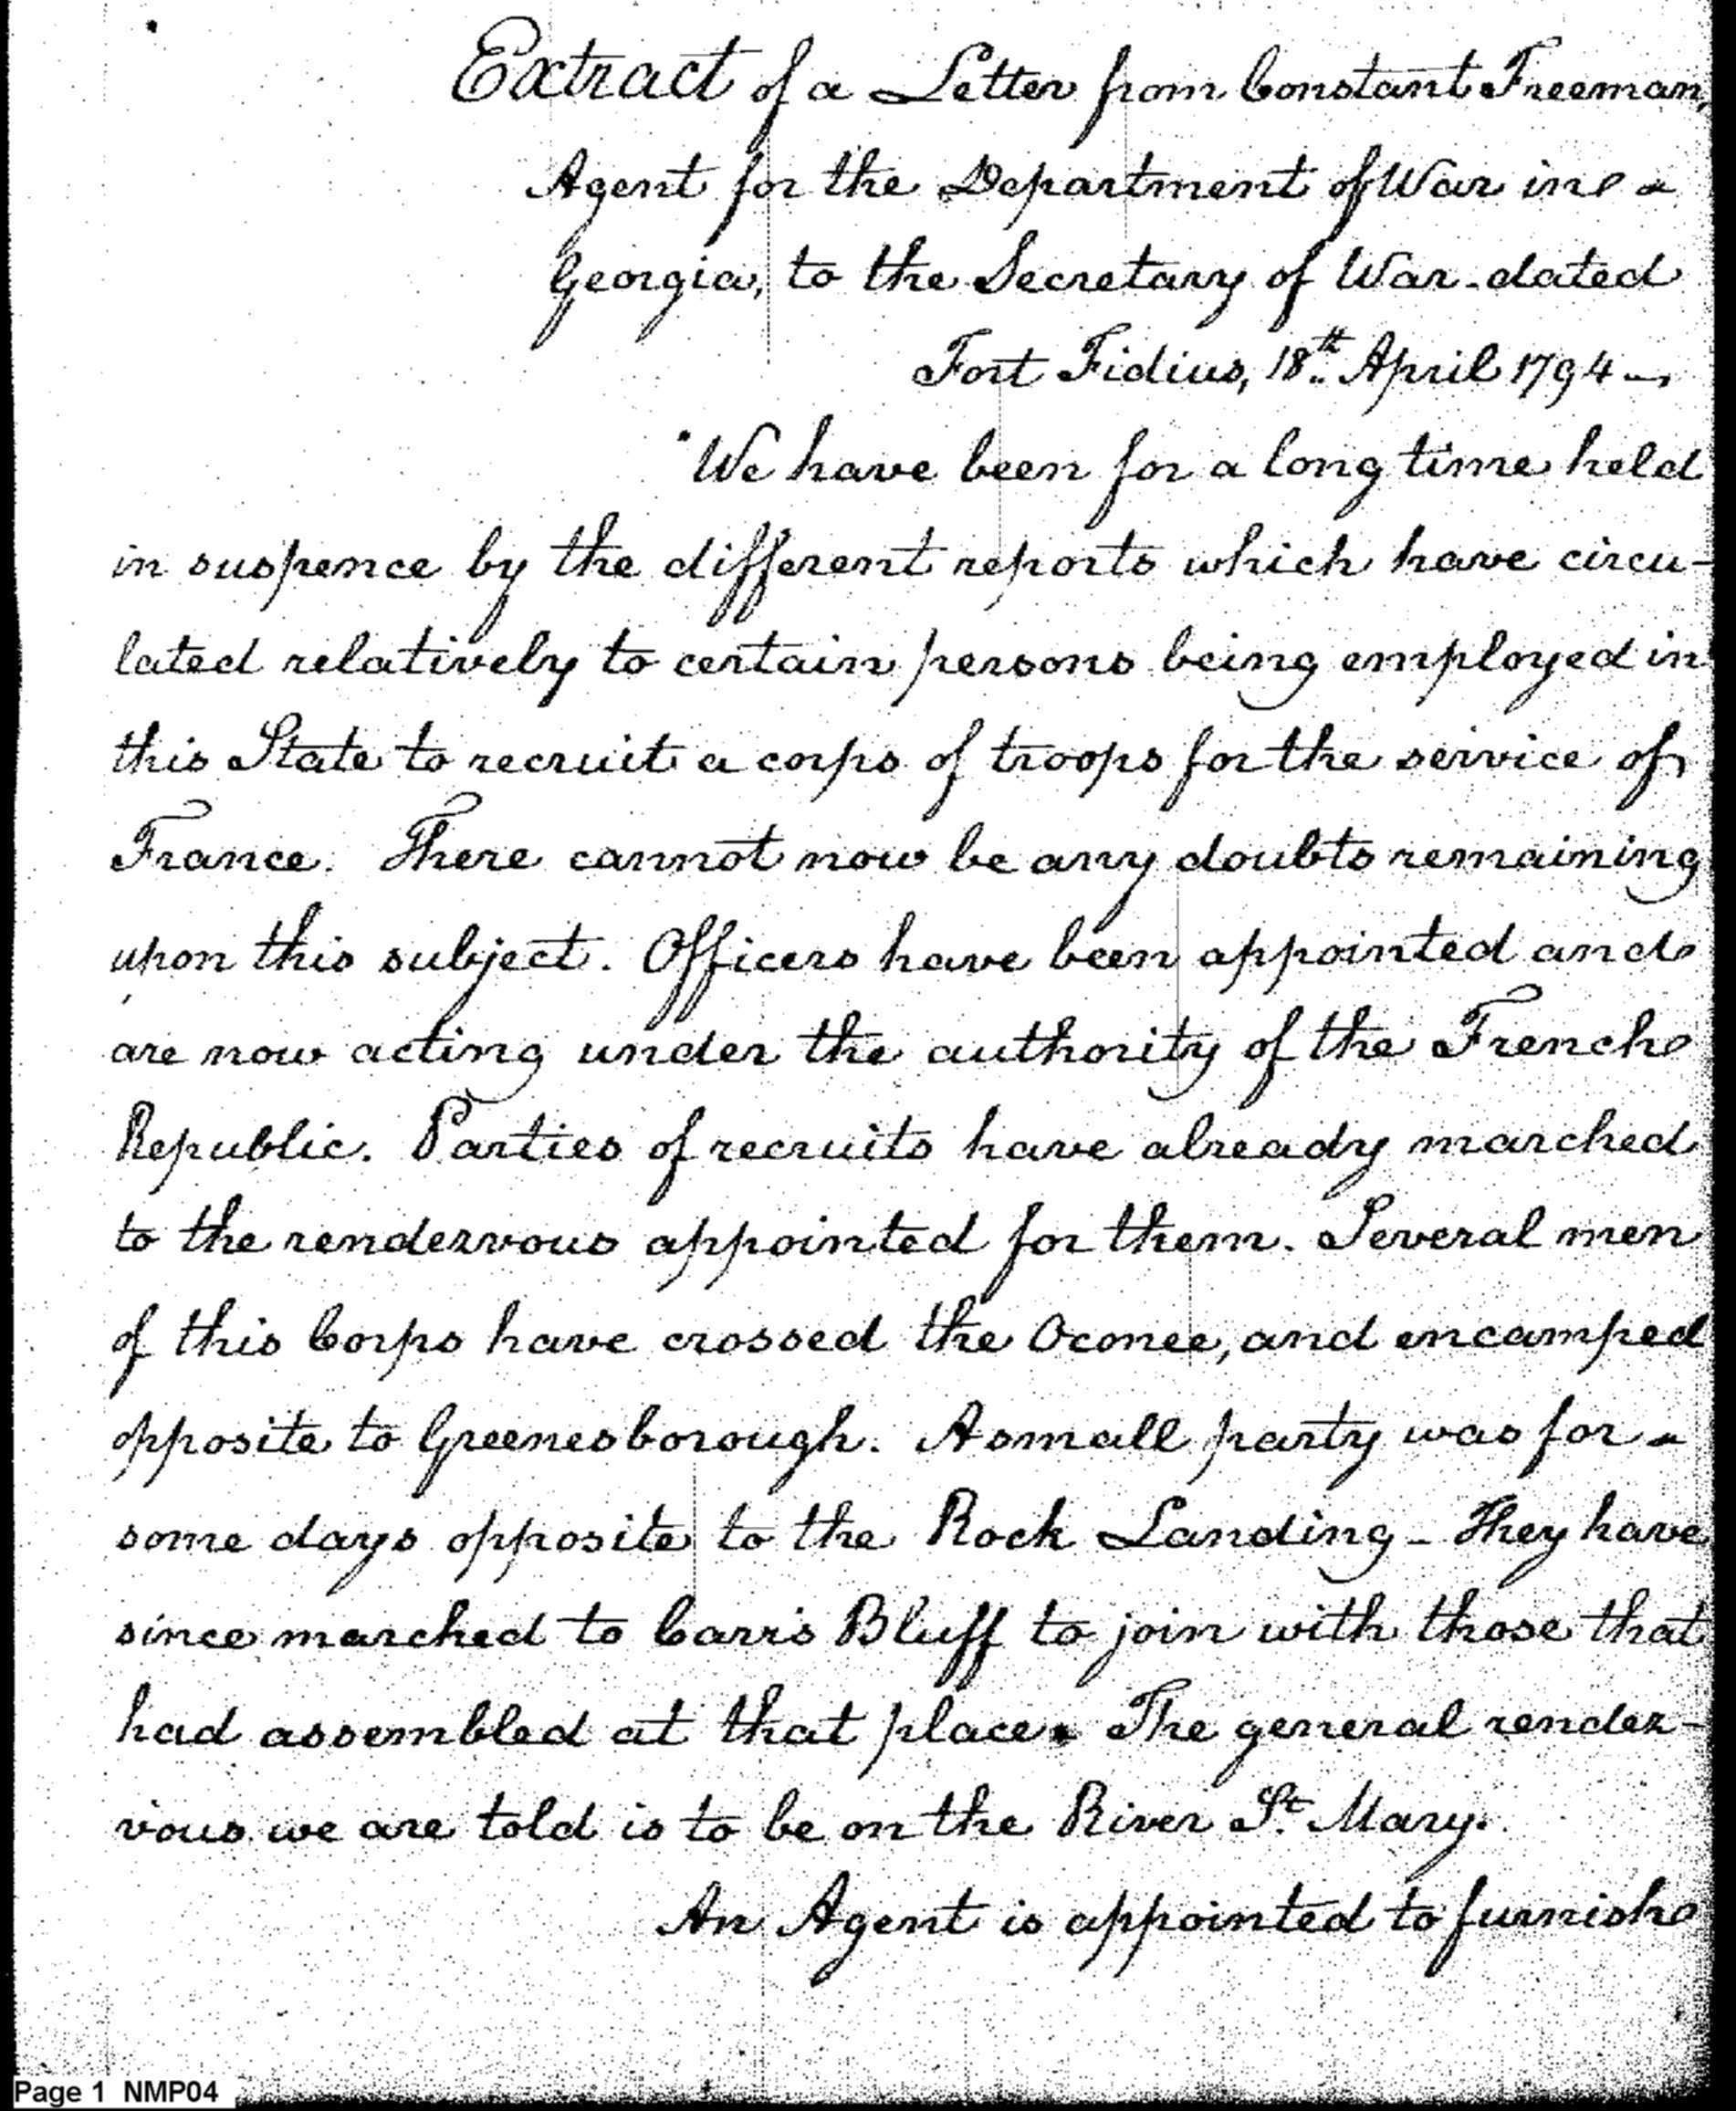 Extract of a Letter from Constant Freeman,
Agent for the Department of War in
Georgia, to the Secretary of War - dated
Fort Fidius, 18th April 1794 -
"We have been for a long time held
in suspence by the different reports which have circu-
lated relatively to certain persons being employed in
this State to recruit a corps of troops for the service of
France. There cannot now be any doubts remaining
upon this subject. Officers have been appointed and
are now acting under the authority of the French
Republic. Parties of recruits have already marched
to the rendezvous appointed for them. Several men
of this Corps have crossed the Oconee, and encamped
opposite to Greenesborough. A small party was for
some days opposite to the Rock Landing - They have
since marched to Carr's Bluff to join with those that
had assembled at that place. The general rendez-
vous we are told is to be on the River St. Mary.
An Agent is appointed to furnish
Page 1 NMP04